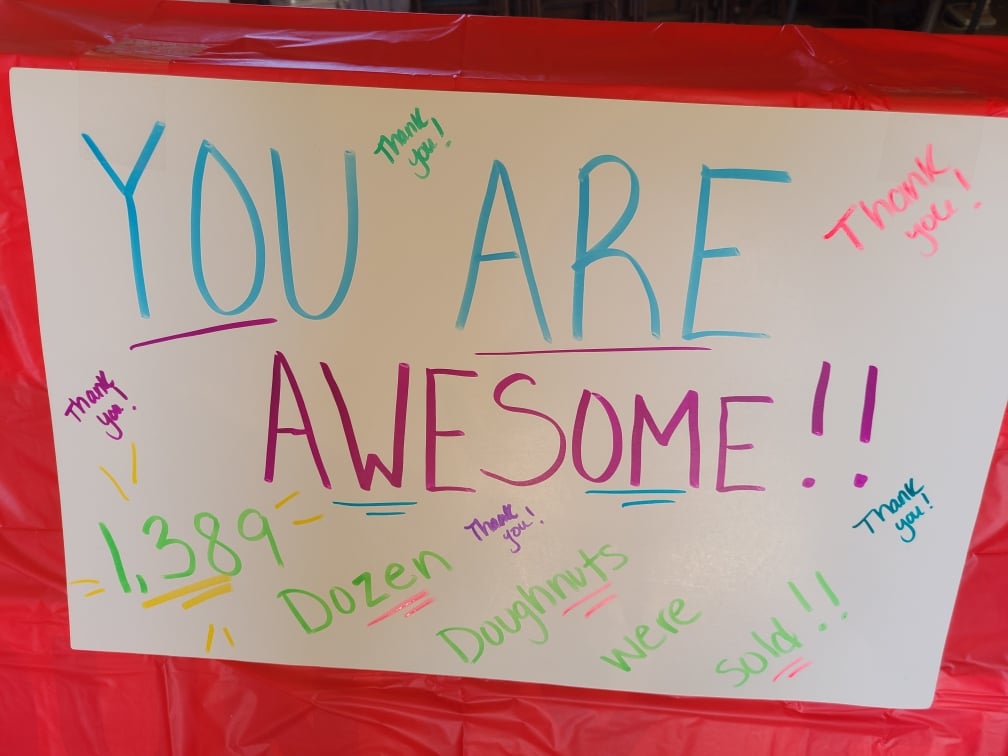 Thank
you!
YOU ARE
Thank
you!
AWESOME!!
Thank
you!
Thank
you!
Thank
you!
1,389 Dozen Doughnuts were sold!!